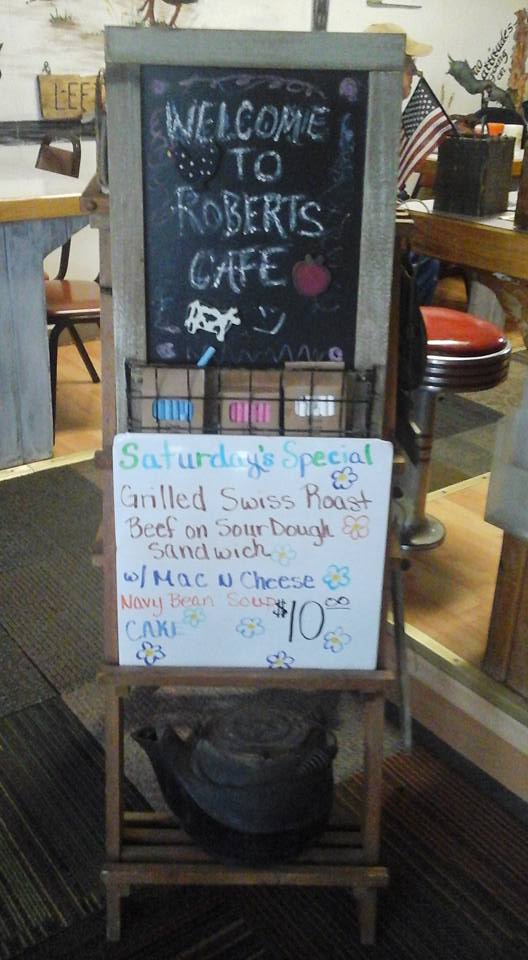 LEE
no
attitudes
WELCOME
TO
ROBERTS
CAFE
Saturday's Special
Grilled Swiss Roast
Beef on SourDough
Sandwich
w/ Mac N Cheese
Navy Bean Soup
$10.00
CAKE